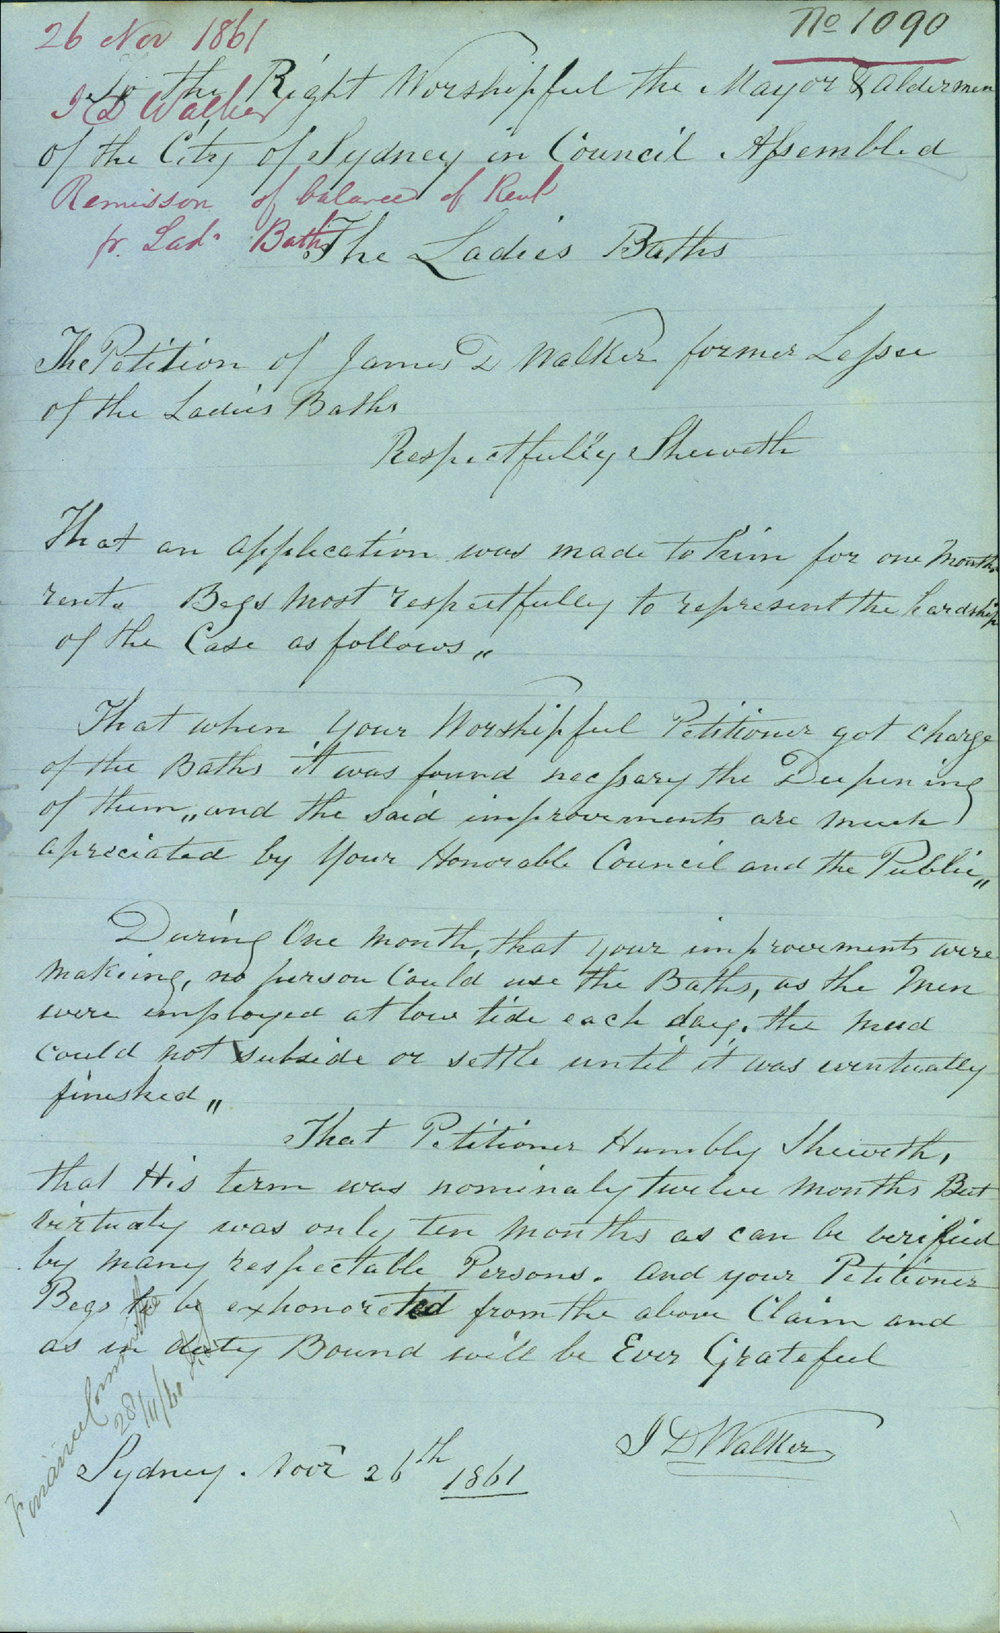 26 Nov 1861
No 1090
To the Right Worshipful the Mayor & aldermen
J D Walker
of the City of Sydney in Council Assembled
Remisson of balance of Rent
fr. Lads Baths
The Ladies Baths
The Petition of James D Walker former Lessee
of the Ladies Baths
Respectfully Sheweth
That an application was made to him for one months
rent„ Begs most respectfully to represent the hardship
of the Case as follows„
That when your Worshipful Petitioner got charge
of the Baths it was found necessary the Deepening
of them„ and the said improvements are much
apreciated by your Honorable Council and the Public„
During One month, that your improvements were
makeing, no person Could use the Baths, as the Men
were employed at low tide each day. the mud
could not subside or settle until it was eventually
finished„
That Petitioner Humbly Sheweth,
that His term was nominaly twelve months But
virtualy was only ten months as can be verified
by many respectable Persons. and your Petitioner
Begs to be exhonorated from the above Claim and
as in duty Bound will be Ever Grateful
J D Walker
Sydney. Novr 26th 1861
Finance Committee
28/11/61